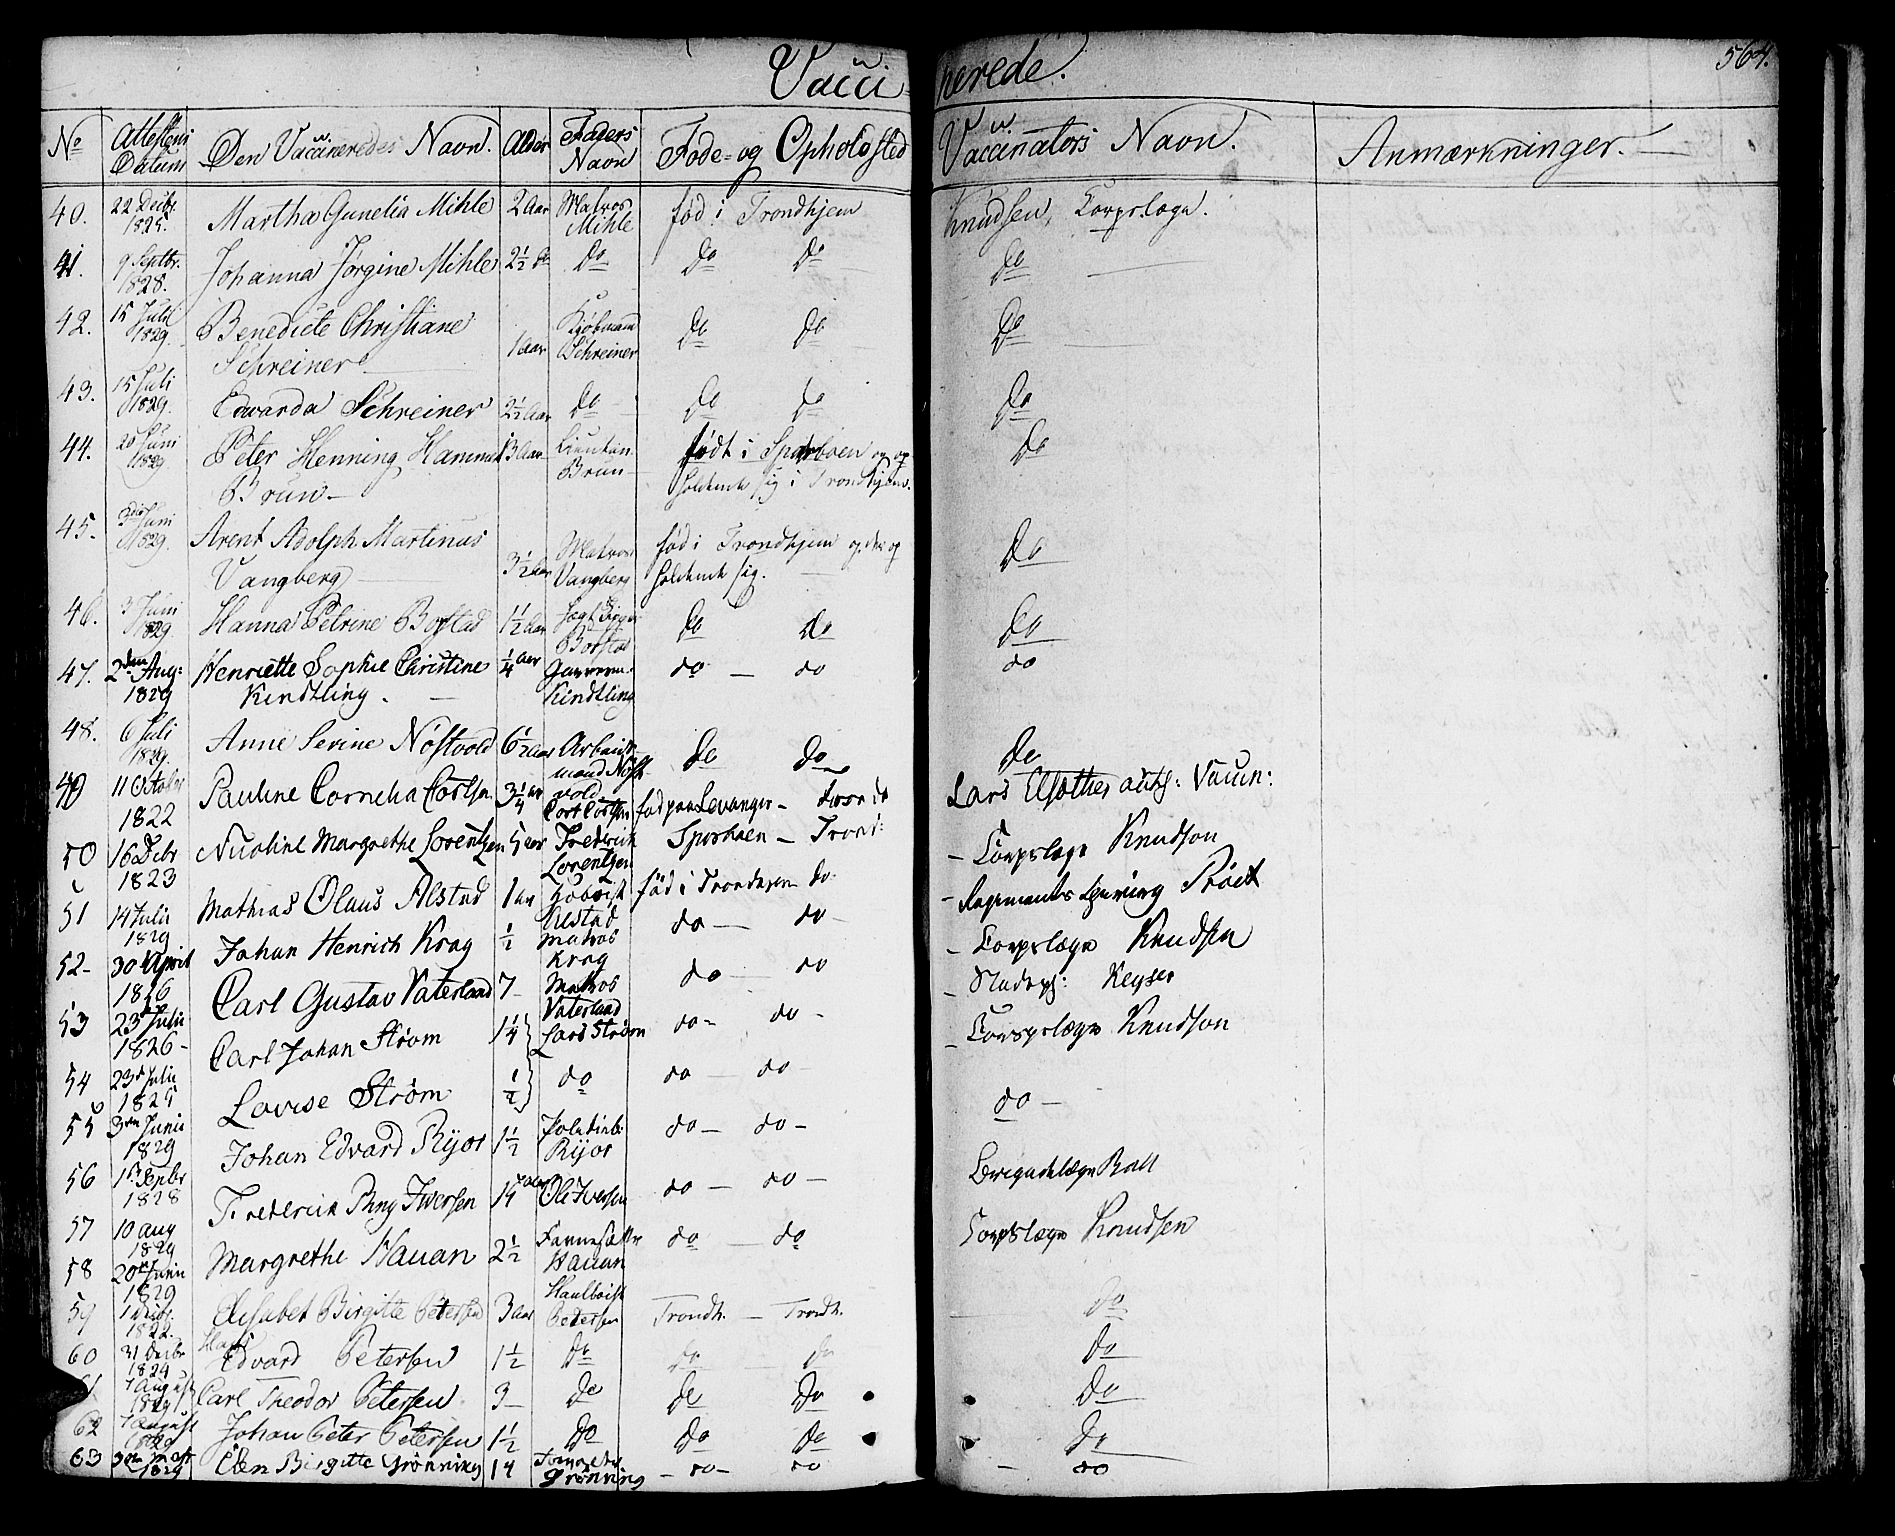 Vaccinerede.
564.
No Attestens Datum Den Vaccineredes Navn. Alder Faders Navn Føde- og Opholdsted Vaccinators Navn. Anmærkninger.
40. 22 Decbr 1825. Martha Gunelia Mihle 2 Aar Matros Mihle fød i Trondhjem Knudsen, Corpslæge.
41. 9 Septbr. 1828. Johanna Jørgine Mihle 2½ do do do do do
42. 15 Juli 1829. Benedicte Christiane Schreiner 1 Aar Kjøbmand Schreiner do do do
43. 15 Juli 1829. Edvarda Schreiner 2½ Aar do do do do
44. 20 Juni 1829. Peter Henning Hammer Brun 3 Aar Lieutn. Brun født i Sparboen og opholdende sig i Trondhjem. do
45. 3 Juni 1829. Arent Adolph Martinus Vangberg 3½ Aar Matros Vangberg fød i Trondhjem og der opholdende sig. do
46. 3 Juni 1829. Hanna Petrine Bostad 1½ Aar Bostad do do do
47. 2den Aug: 1829 Henriette Sophie Christine Kindtling. ¼ Aar Kindtling do — do do
48. 6 Juli 1829. Anne Serine Nøstvold 6½ Aar Arbeidsmand Nøstvold do do do
49 11 October 1822 Pauline Cornelia Cortsen 3¼ Aar Cort Cortsen fød paa Levanger — Lars Elsæther auth: Vaccin:
50 16 Debr 1823 Nicoline Margrethe Lorentzen 5 aar Frederich Lorentzen Sparboen — Trond: — Corpslæge Knudson
51 14 Julii 1829 Mathias Olaus Alstad 1 aar Hoboist Alstad fød i Trondhjem do — Regiments Chirurg
52 - 30 April 1826 Johan Henrich Krag ½ Matros Krag do — do — Corpslæge Knudsen
53 23d Julii 1826 - Carl Gustav Vaterland 7 - Matros Vaterland do — do — Stadsph: Keyser
Carl Johan Strøm 1¼ Lars Strøm do - do - — Corpslæge Knudson
54 23d Julii 1825 Lovise Strøm ½ do do — do — do —
55 3die Junii 1829 Johan Edvard Ryjor 1½ Ryjor do — do —
56 1st Septbr 1828 Frederich Ring Iversen 14 Ole Iversen do — do — Brigadelæge
57 10 aug 1829 Margrethe Hauan 2½ Hauan do — do Corpslæge Knudsen
58 20de Junii 1829
59 1 Decbr. 1822. Elisabet Birgitte Petersen 3 aar Hautboist Petersen Trondh. — Trondh. do
60 31 Decbr 1824 Hans Edvard Petersen 1½ do do do do
7 August 1829 Carl Theodor Petersen 3 — do do do do
62 7 August 1829 Johan Peter Petersen 1½ do do do do
63 1829 Elen Birgitte Grønning 14 Grønning — do — do do